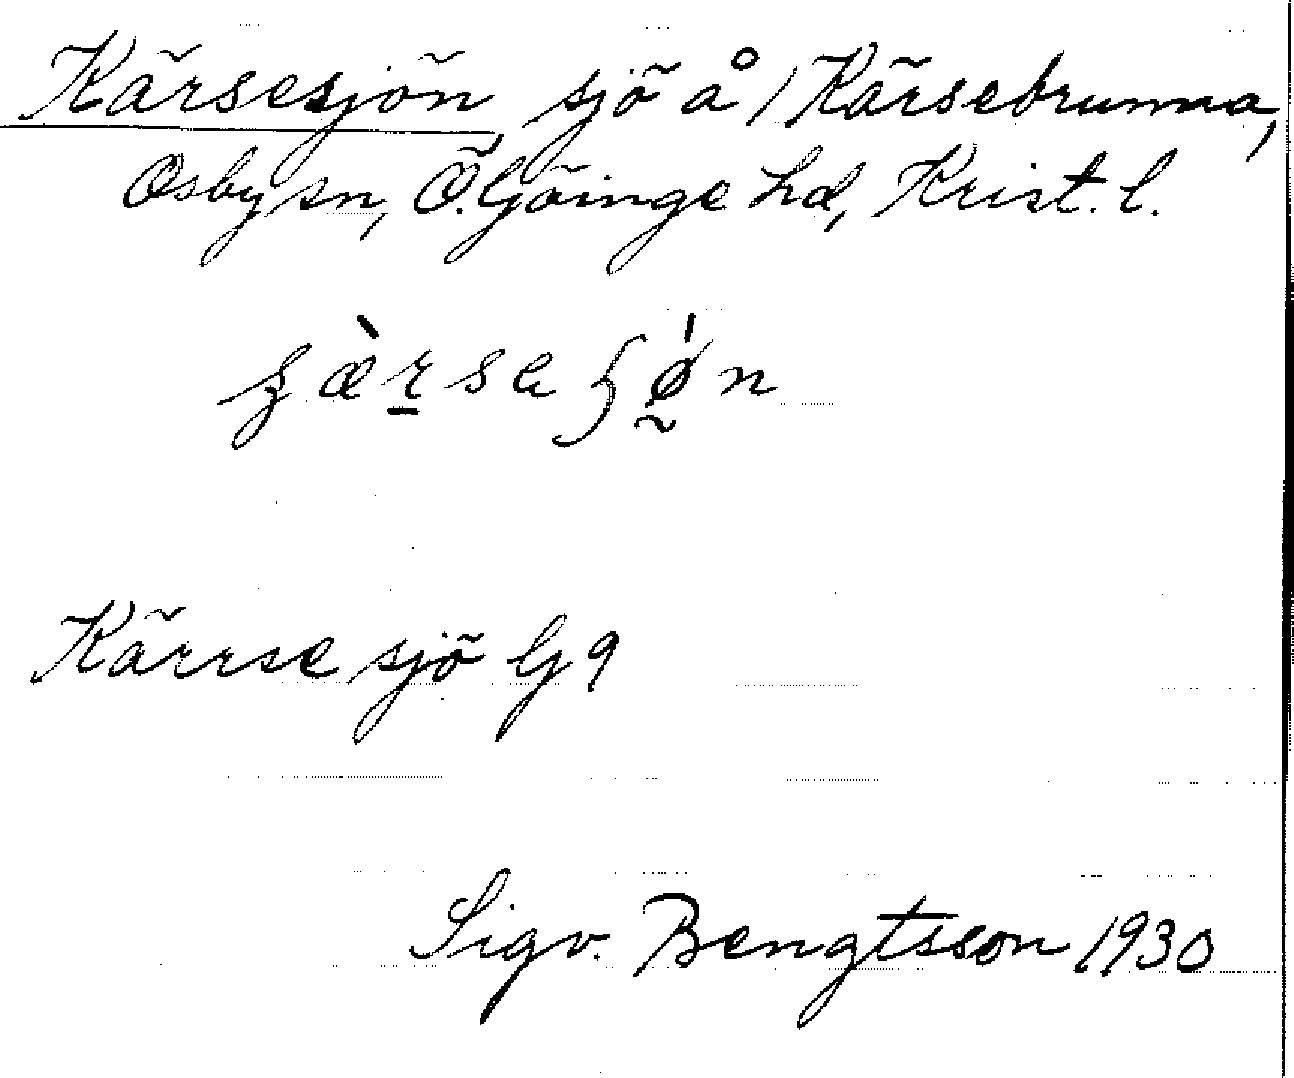 Kärsesjön, sjö å / Kärsebrunna,
Osby sn, Ö. Göinge hd, Krist. l.
Kärrse sjö G 9
Sigv. Bengtsson 1930